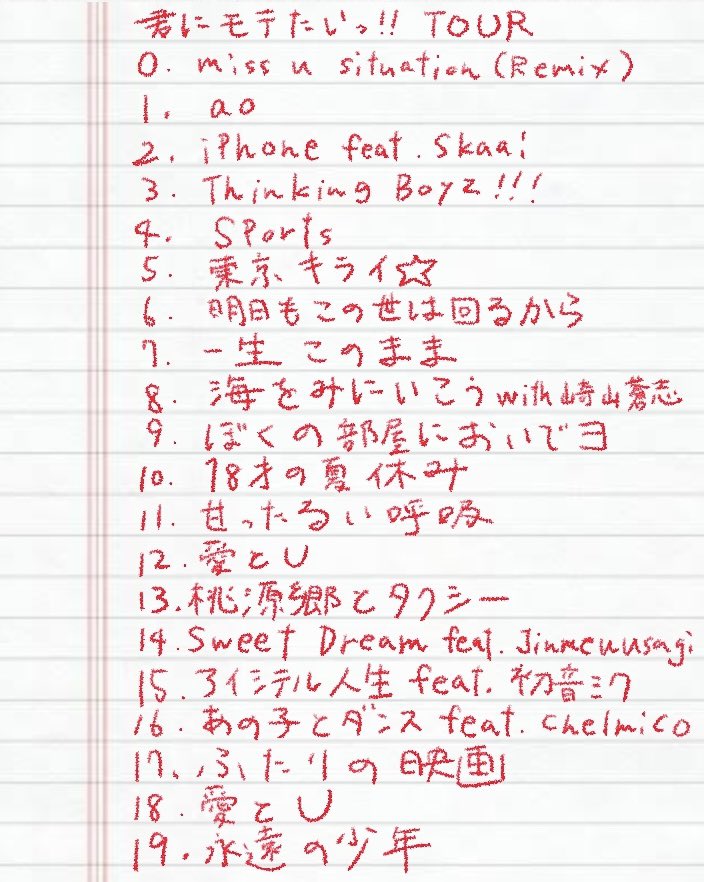 君にモテたいっ!! TOUR
0. miss u situation (Remix)
1. ao
2. iPhone feat. Skaai
3. Thinking Boyz!!!
4. SPorts
5.東京キライ☆
6. 明日もこの世は回るから
7. 一生このまま
8. 海をみにいこう with 崎山蒼志
9. ぼくの部屋においでヨ
10. 18才の夏休み
11. 甘ったるい呼吸
12. 愛とU
13. 桃源郷とタクシー
14. Sweet Dream feat. Jinmenusagi
15. アイシテル人生 feat. 初音ミク
16. あの子とダンス feat. chelmico
17. ふたりの映画
18. 愛とU
19. 永遠の少年